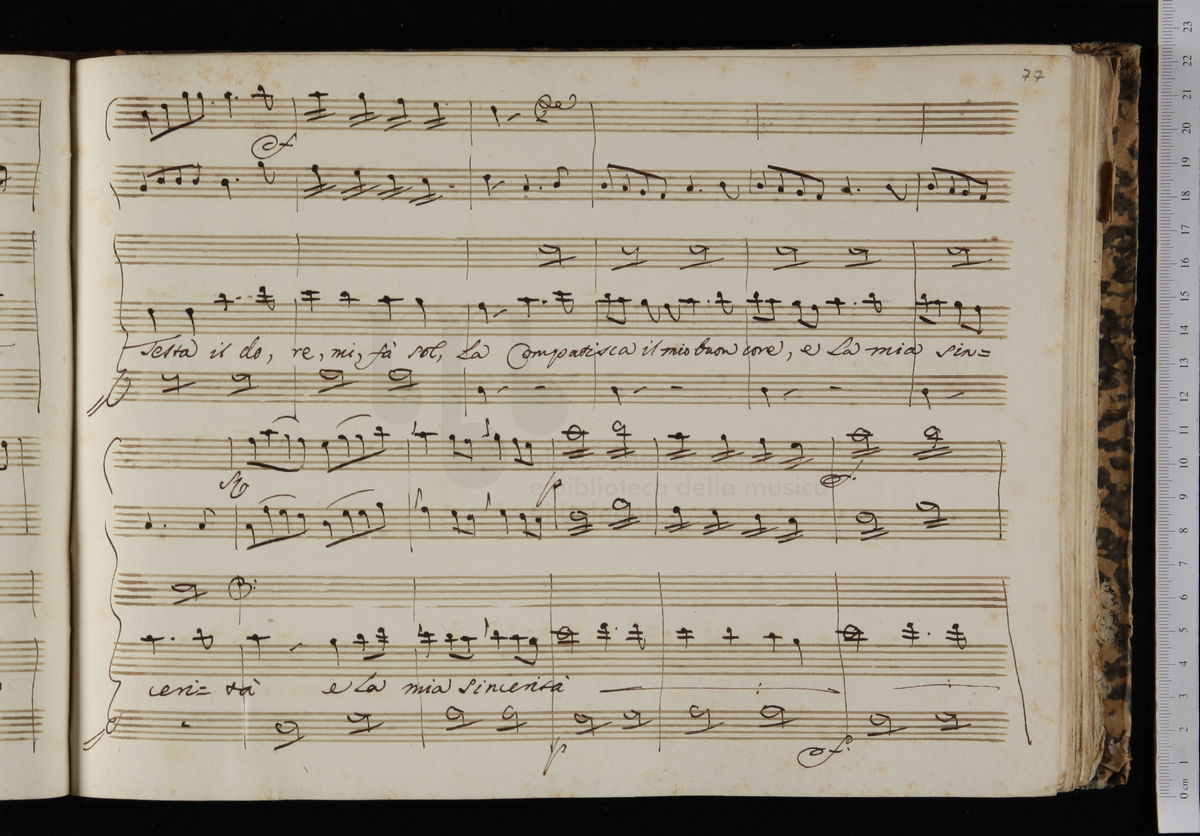 77
testa il do, re, mi, fà sol, la Compatisca il mio buon core, e la mia sin=
p
ceri= tà e la mia sincerità
p
biblioteca della musica
0 cm 1 2 3 4 5 6 7 8 9 10 11 12 13 14 15 16 17 18 19 20 21 22 23